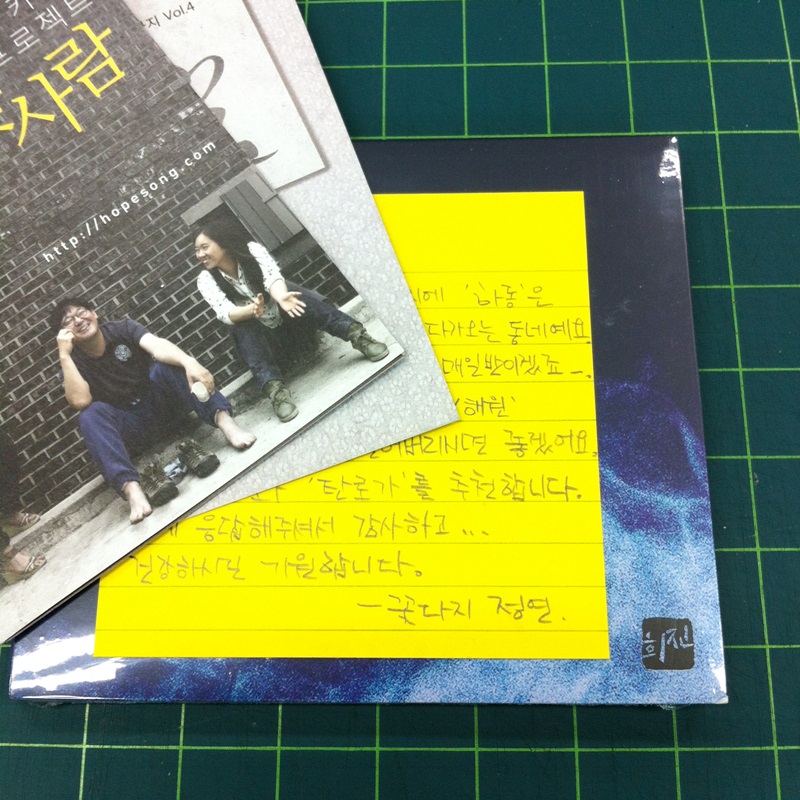 로젝트
사람
지 Vol.4
http://hopesong.com
에 '하동'은
다가오는 동네예요.
매일반이겠죠 -.
'해원'
버리시면 좋겠어요.
'탄로가'를 추천합니다.
응답해주셔서 감사하고...
건강하시길 기원합니다.
- 꽃다지 정연.
희진